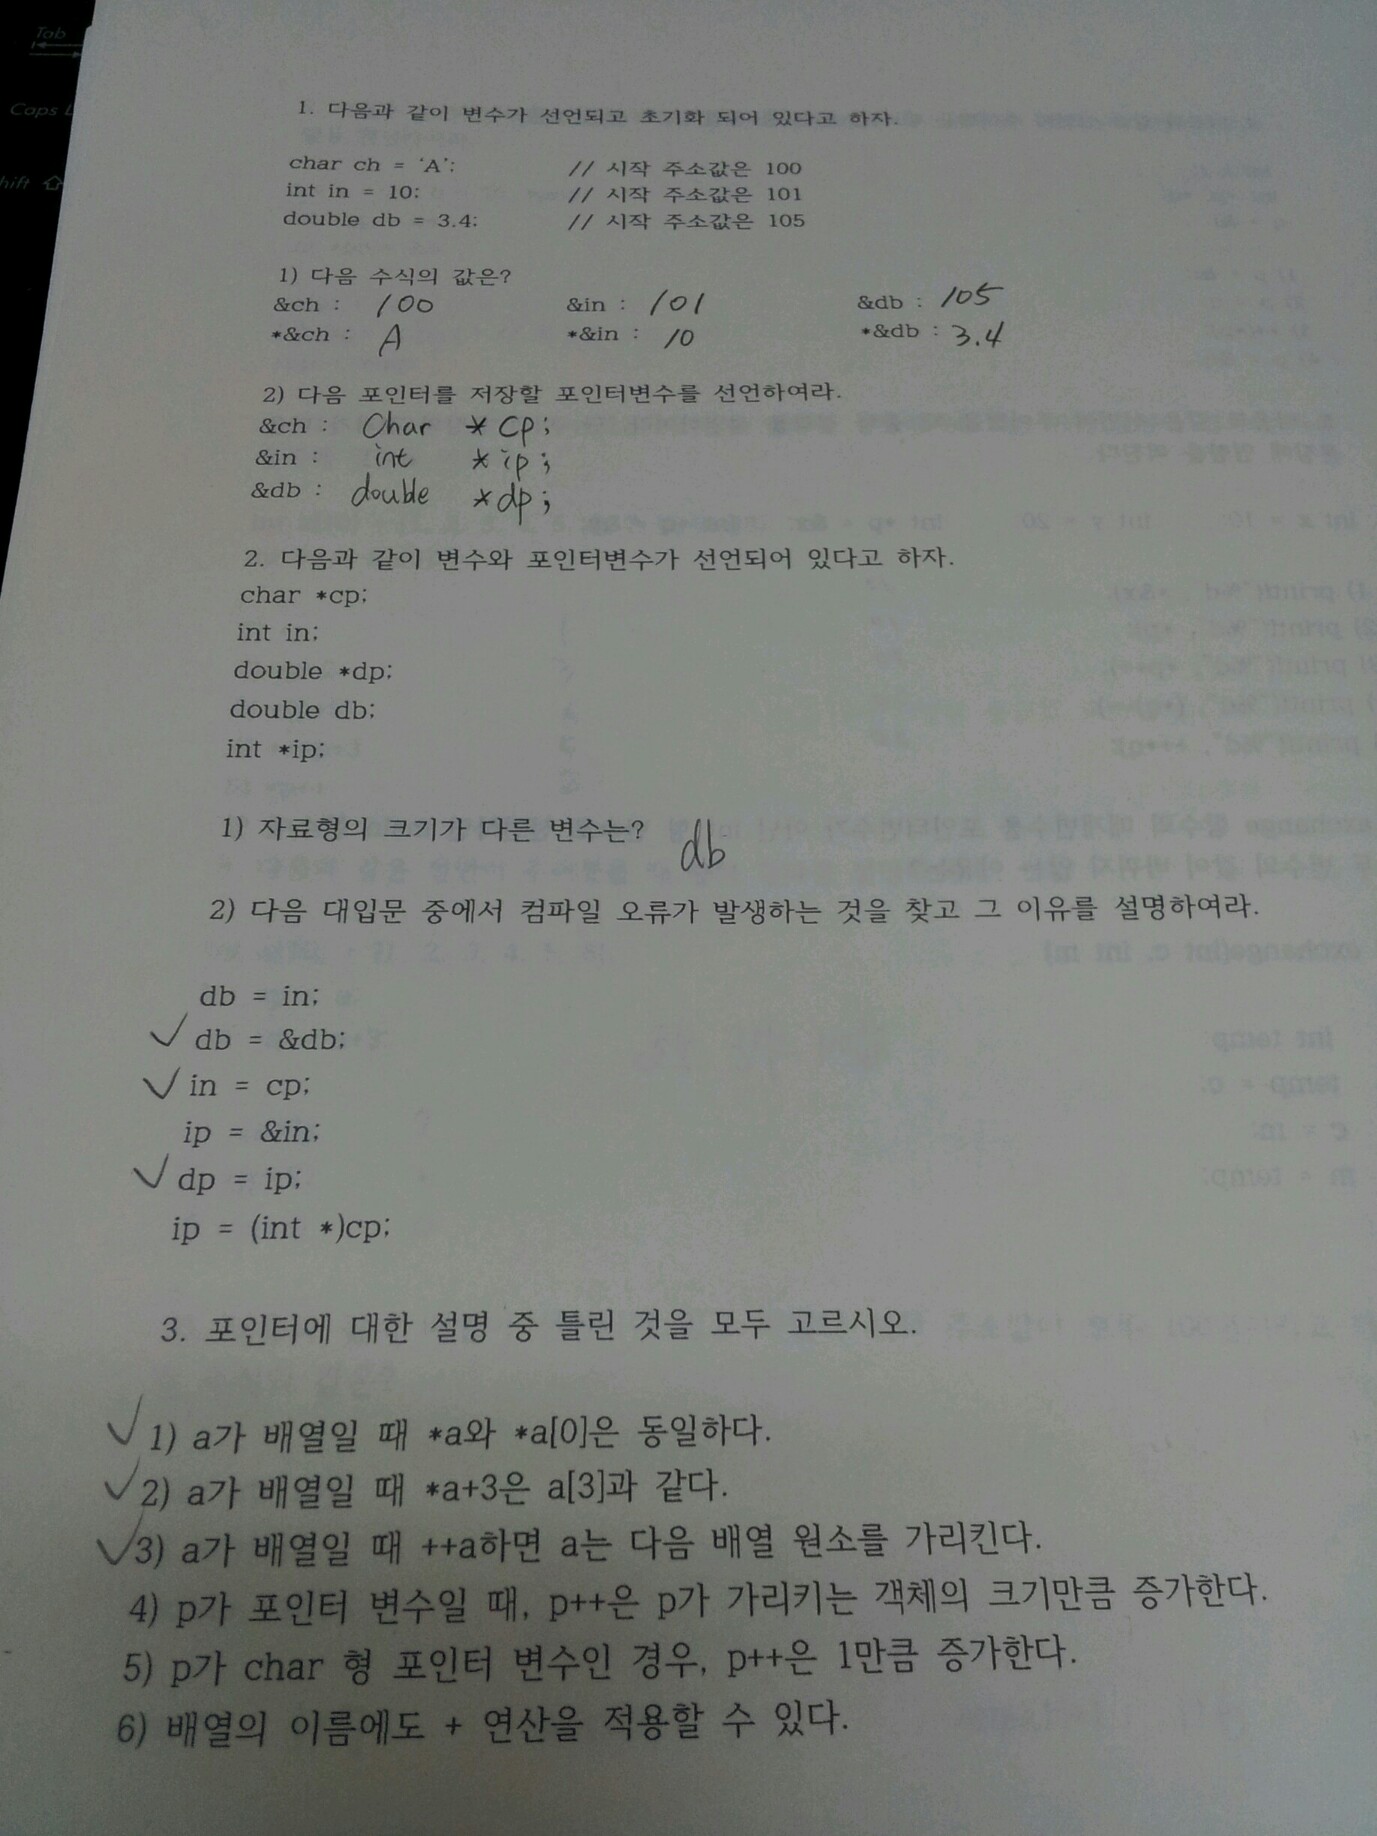 Tab
Caps L
hift
1. 다음과 같이 변수가 선언되고 초기화 되어 있다고 하자.
char ch = 'A'; // 시작 주소값은 100
int in = 10; // 시작 주소값은 101
double db = 3.4; // 시작 주소값은 105
1) 다음 수식의 값은?
&ch : 100 &in : 101 &db : 105
*&ch : A *&in : 10 *&db : 3.4
2) 다음 포인터를 저장할 포인터변수를 선언하여라.
&ch : Char *cp;
&in : int *ip;
&db : double *dp;
2. 다음과 같이 변수와 포인터변수가 선언되어 있다고 하자.
char *cp;
int in;
double *dp;
double db;
int *ip;
1) 자료형의 크기가 다른 변수는? db
2) 다음 대입문 중에서 컴파일 오류가 발생하는 것을 찾고 그 이유를 설명하여라.
db = in;
✓ db = &db;
✓ in = cp;
ip = &in;
✓ dp = ip;
ip = (int *)cp;
3. 포인터에 대한 설명 중 틀린 것을 모두 고르시오.
✓ 1) a가 배열일 때 *a와 *a[0]은 동일하다.
✓ 2) a가 배열일 때 *a+3은 a[3]과 같다.
✓ 3) a가 배열일 때 ++a하면 a는 다음 배열 원소를 가리킨다.
4) p가 포인터 변수일 때, p++은 p가 가리키는 객체의 크기만큼 증가한다.
5) p가 char 형 포인터 변수인 경우, p++은 1만큼 증가한다.
6) 배열의 이름에도 + 연산을 적용할 수 있다.